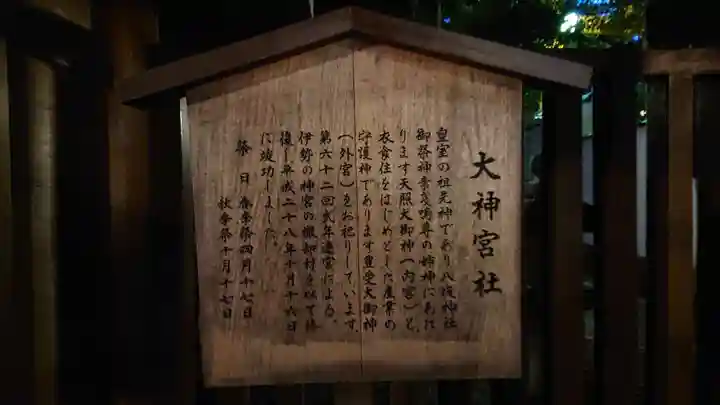 大神宮社
皇室の祖先神であり八坂神社
御祭神素戔嗚尊の姉神にあた
ります天照大御神（内宮）と、
衣食住をはじめとした産業の
守護神であります豊受大御神
（外宮）をお祀りしています。
第六十二回式年遷宮による、
伊勢の神宮の撤却材を以て修
復し平成二十八年十月十六日
に竣功しました。
祭日 春季祭四月十七日
秋季祭十月十七日